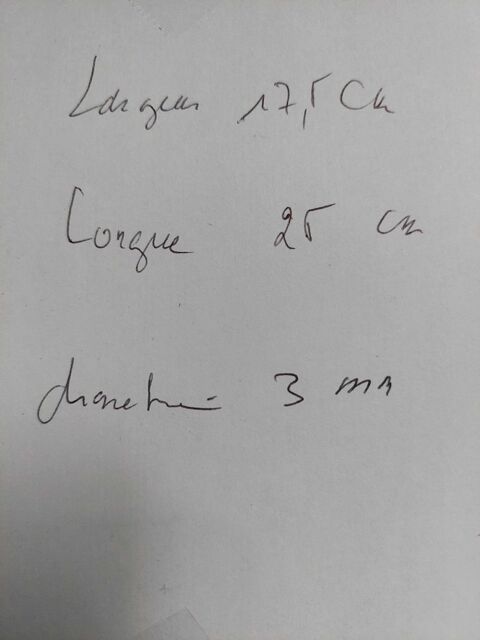 Largeur 17,5 Cm
Longue 25 cm
diametre 3 mm